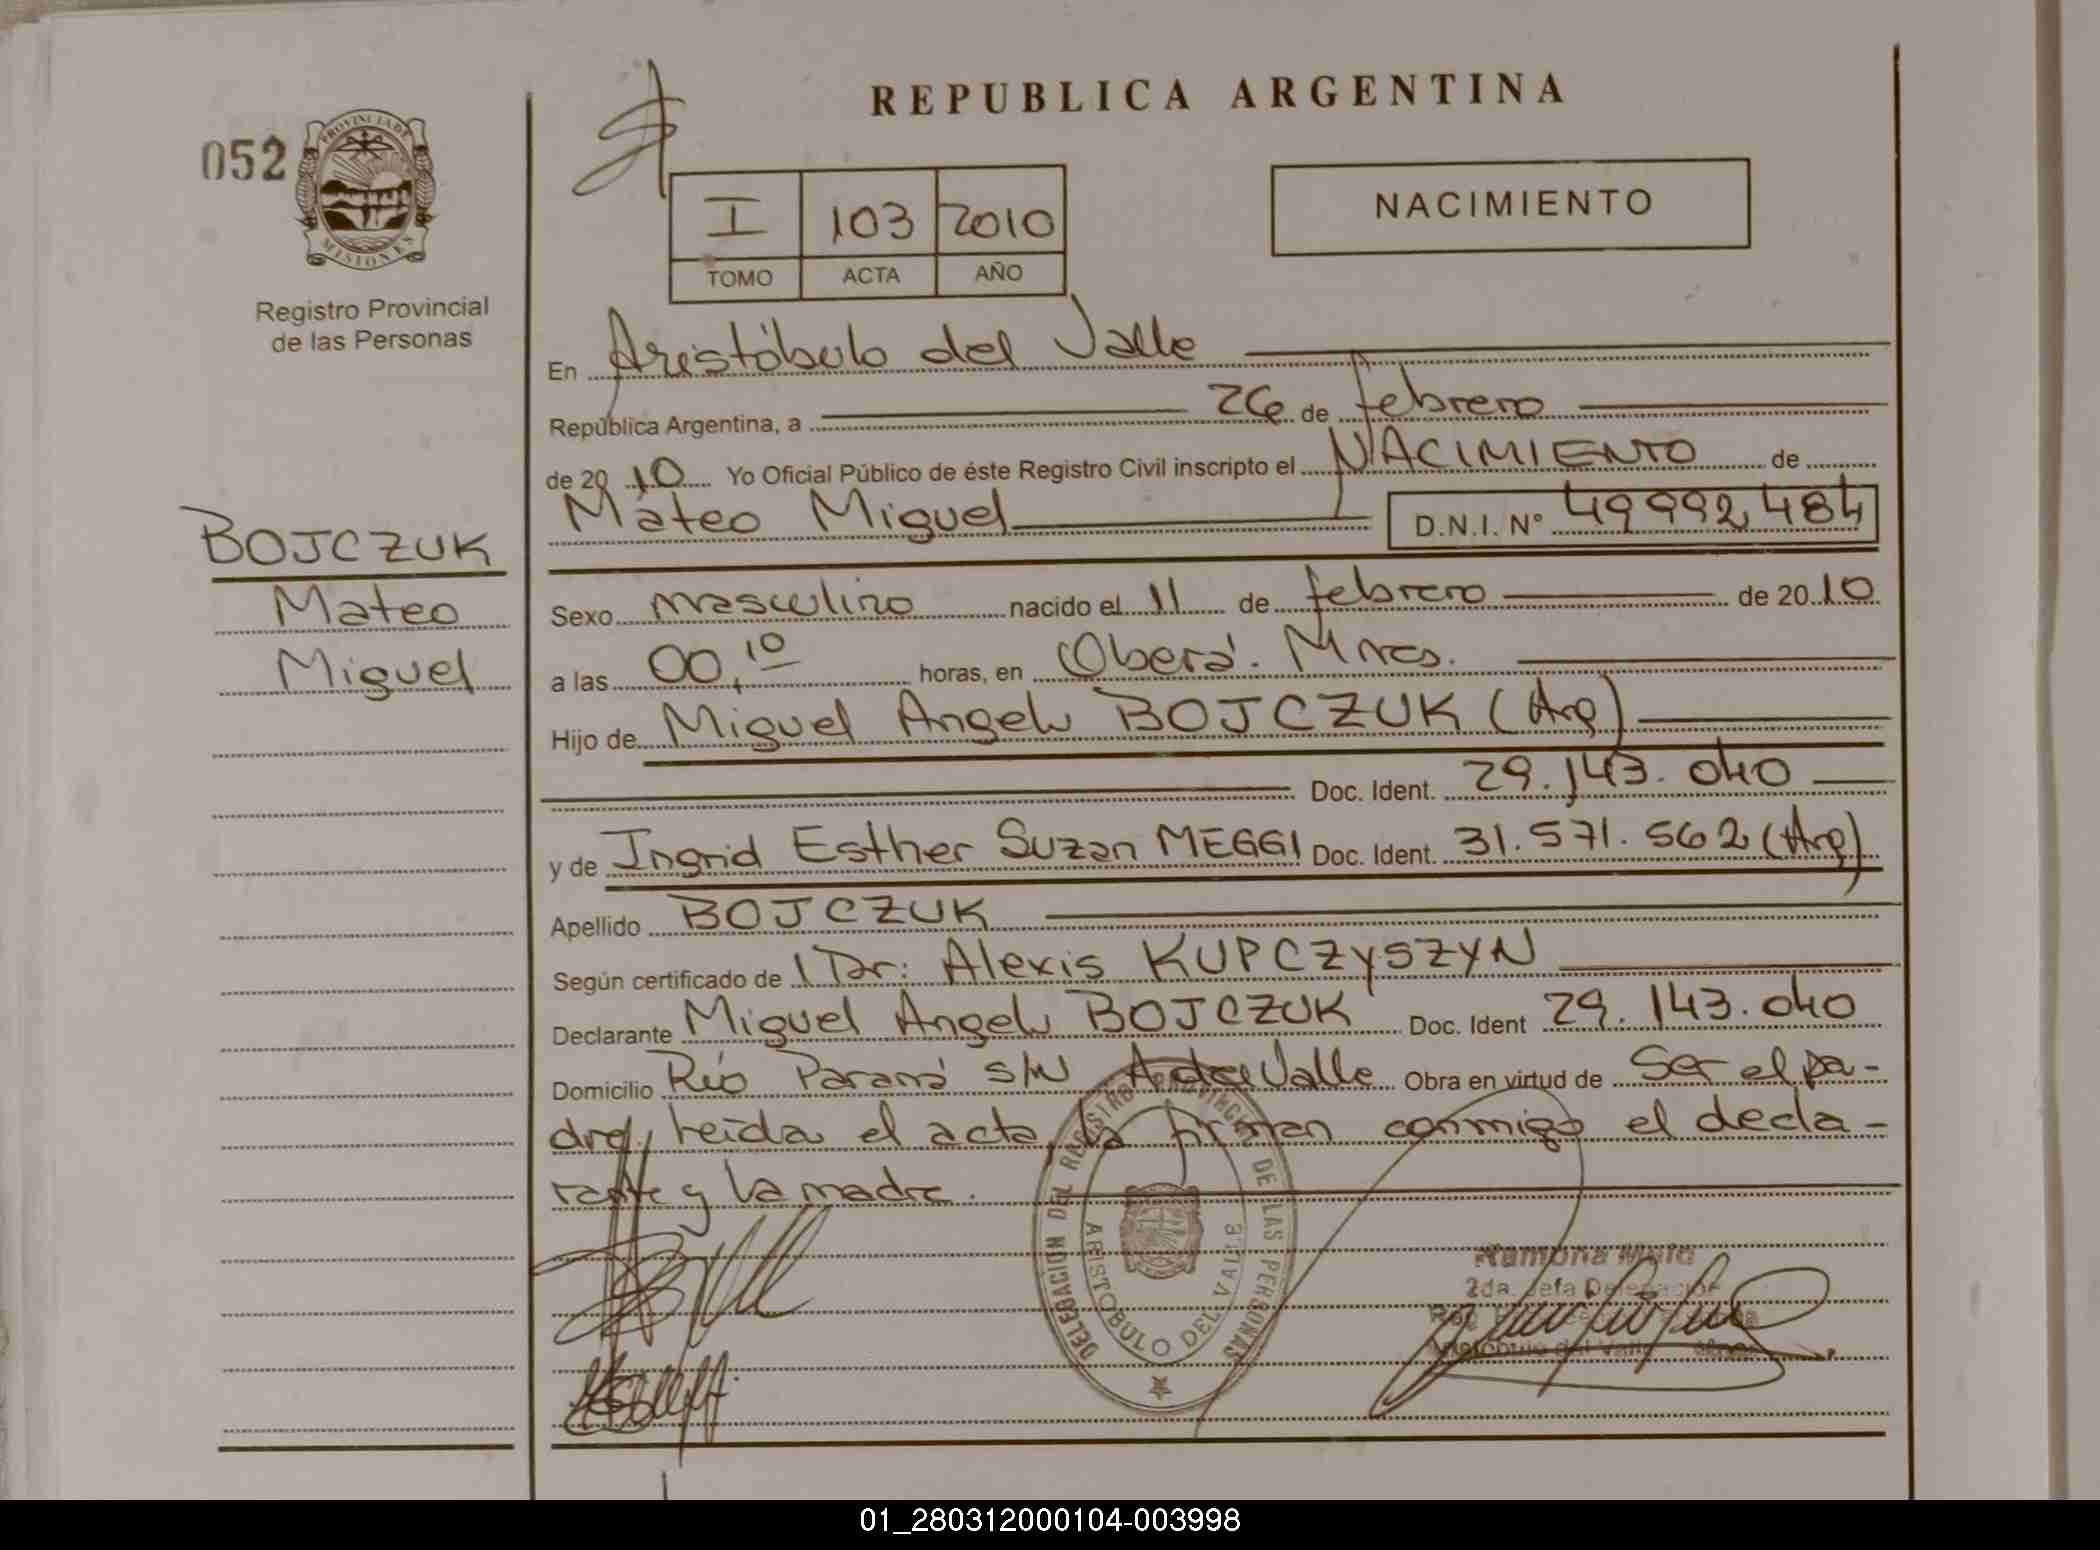 REPUBLICA ARGENTINA
052
PROVINCIA DE
MISIONES
Registro Provincial
de las Personas
I 103 2010
TOMO ACTA AÑO
NACIMIENTO
En Aristóbulo del Valle
República Argentina, a 26 de febrero
de 2010 Yo Oficial Público de éste Registro Civil inscripto el NACIMIENTO de
Mateo Miguel D.N.I. Nº 49992484
BOJCZUK
Mateo
Miguel
Sexo masculino nacido el 11 de febrero de 2010
a las 00,10 horas, en Oberá. Mnes.
Hijo de Miguel Angel BOJCZUK (Arg)
Doc. Ident. 29.143.040
y de Ingrid Esther Suzan MEGGI Doc. Ident. 31.571.562 (Arg)
Apellido BOJCZUK
Según certificado de Dr: Alexis KUPCZYSZYN
Declarante Miguel Angel BOJCZUK Doc. Ident 29.143.040
Domicilio Río Paraná s/n A del Valle Obra en virtud de Ser el pa-
dre, leída el acta, la firman conmigo el decla-
rante y la madre.
DELEGACION DEL REGISTRO PROVINCIAL DE LAS PERSONAS
ARISTOBULO DEL VALLE
Ramona
2da. Jefa Delegación
01_280312000104-003998